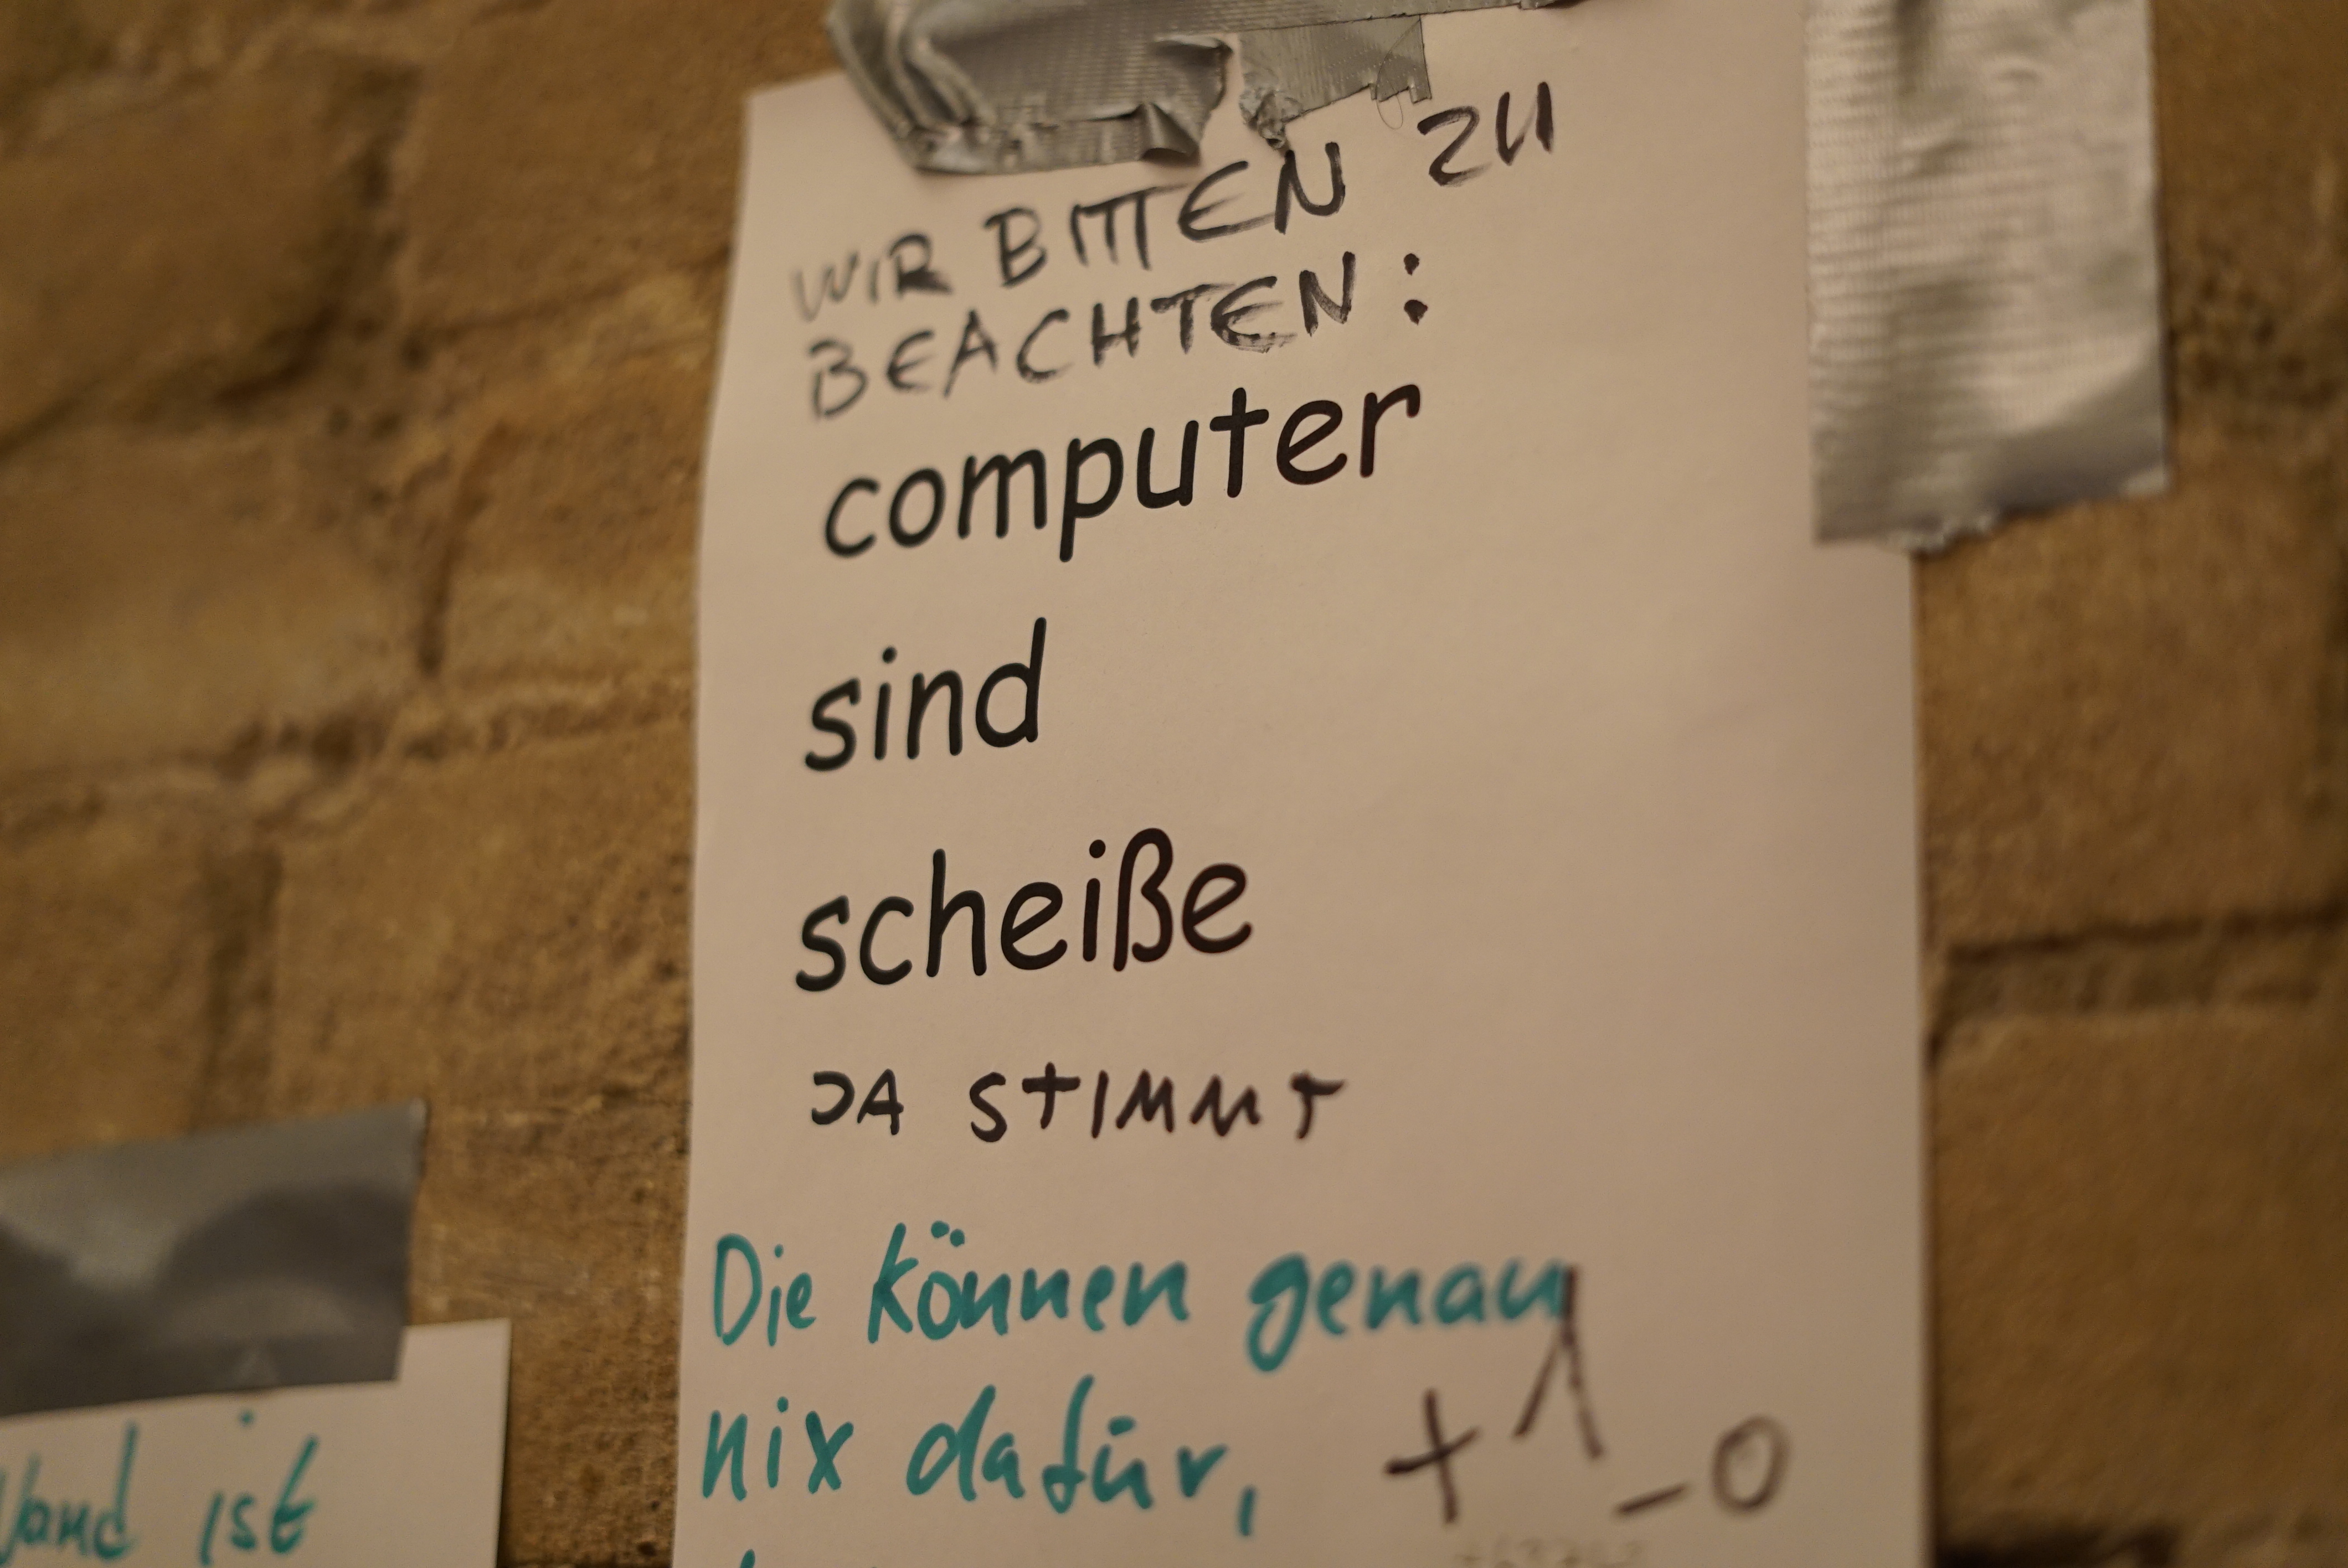 WIR BITTEN ZU
BEACHTEN:
computer
sind
scheiße
JA STIMMT
Die können genau
nix dafür,
+1
-0
Wand ist